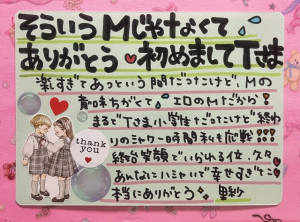 そういうMじゃなくて
ありがとう 初めましてTさま
楽しすぎてあっという間だったけど、Mの
意味ちがくて エロのMだから!
まるでT小学生だったけど 終わ
りのシャワー時間 私も応戦!!!
終始笑顔でいられる位、久々
あんなにハシャいで幸せすぎた
本当にありがとう。里紗
thank
you